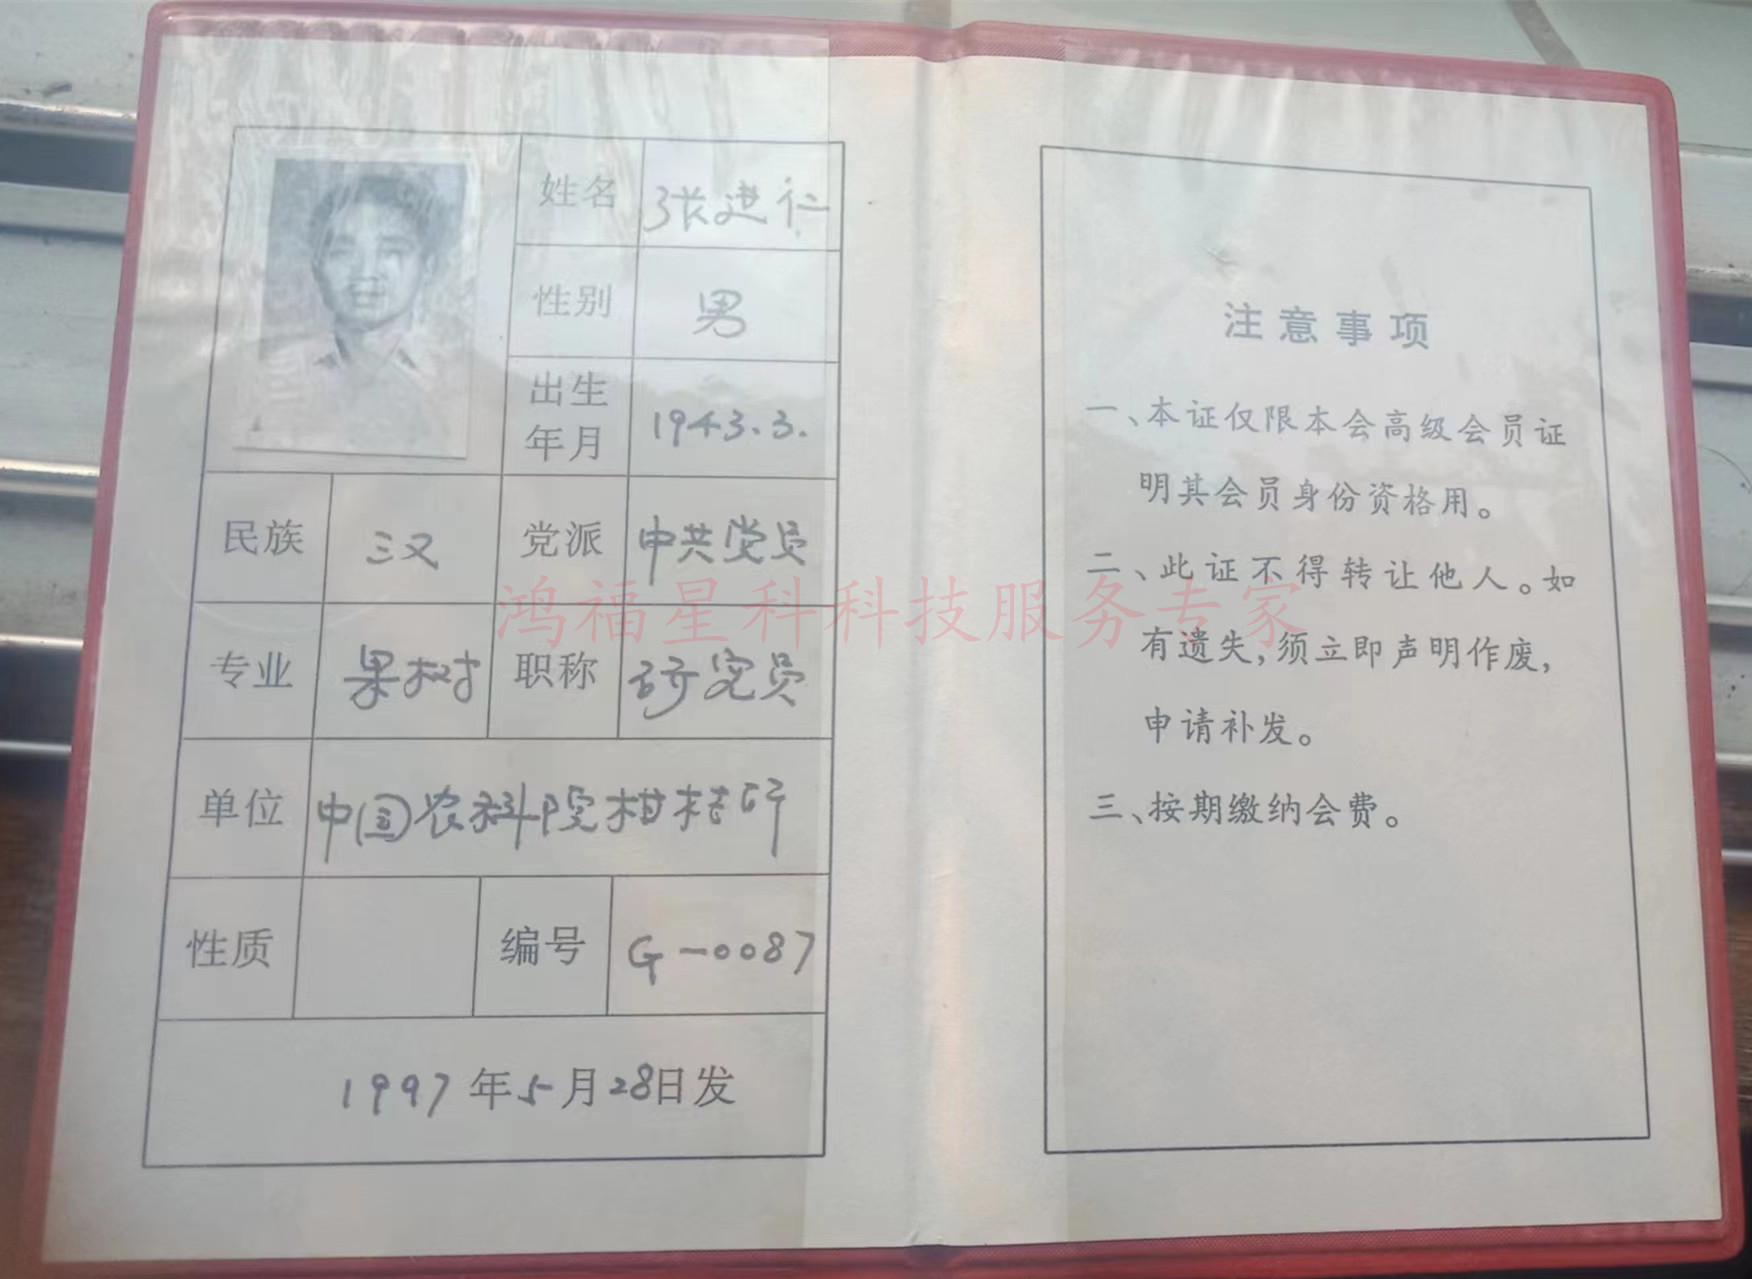 姓名 张进仁
性别 男
出生年月 1943.3.
民族 汉 党派 中共党员
专业 果树 职称 研究员
单位 中国农科院柑桔所
性质 编号 G-0087
1997年5月28日发
注意事项
一、本证仅限本会高级会员证
明其会员身份资格用。
二、此证不得转让他人。如
有遗失,须立即声明作废,
申请补发。
三、按期缴纳会费。
鸿福星科科技服务专家